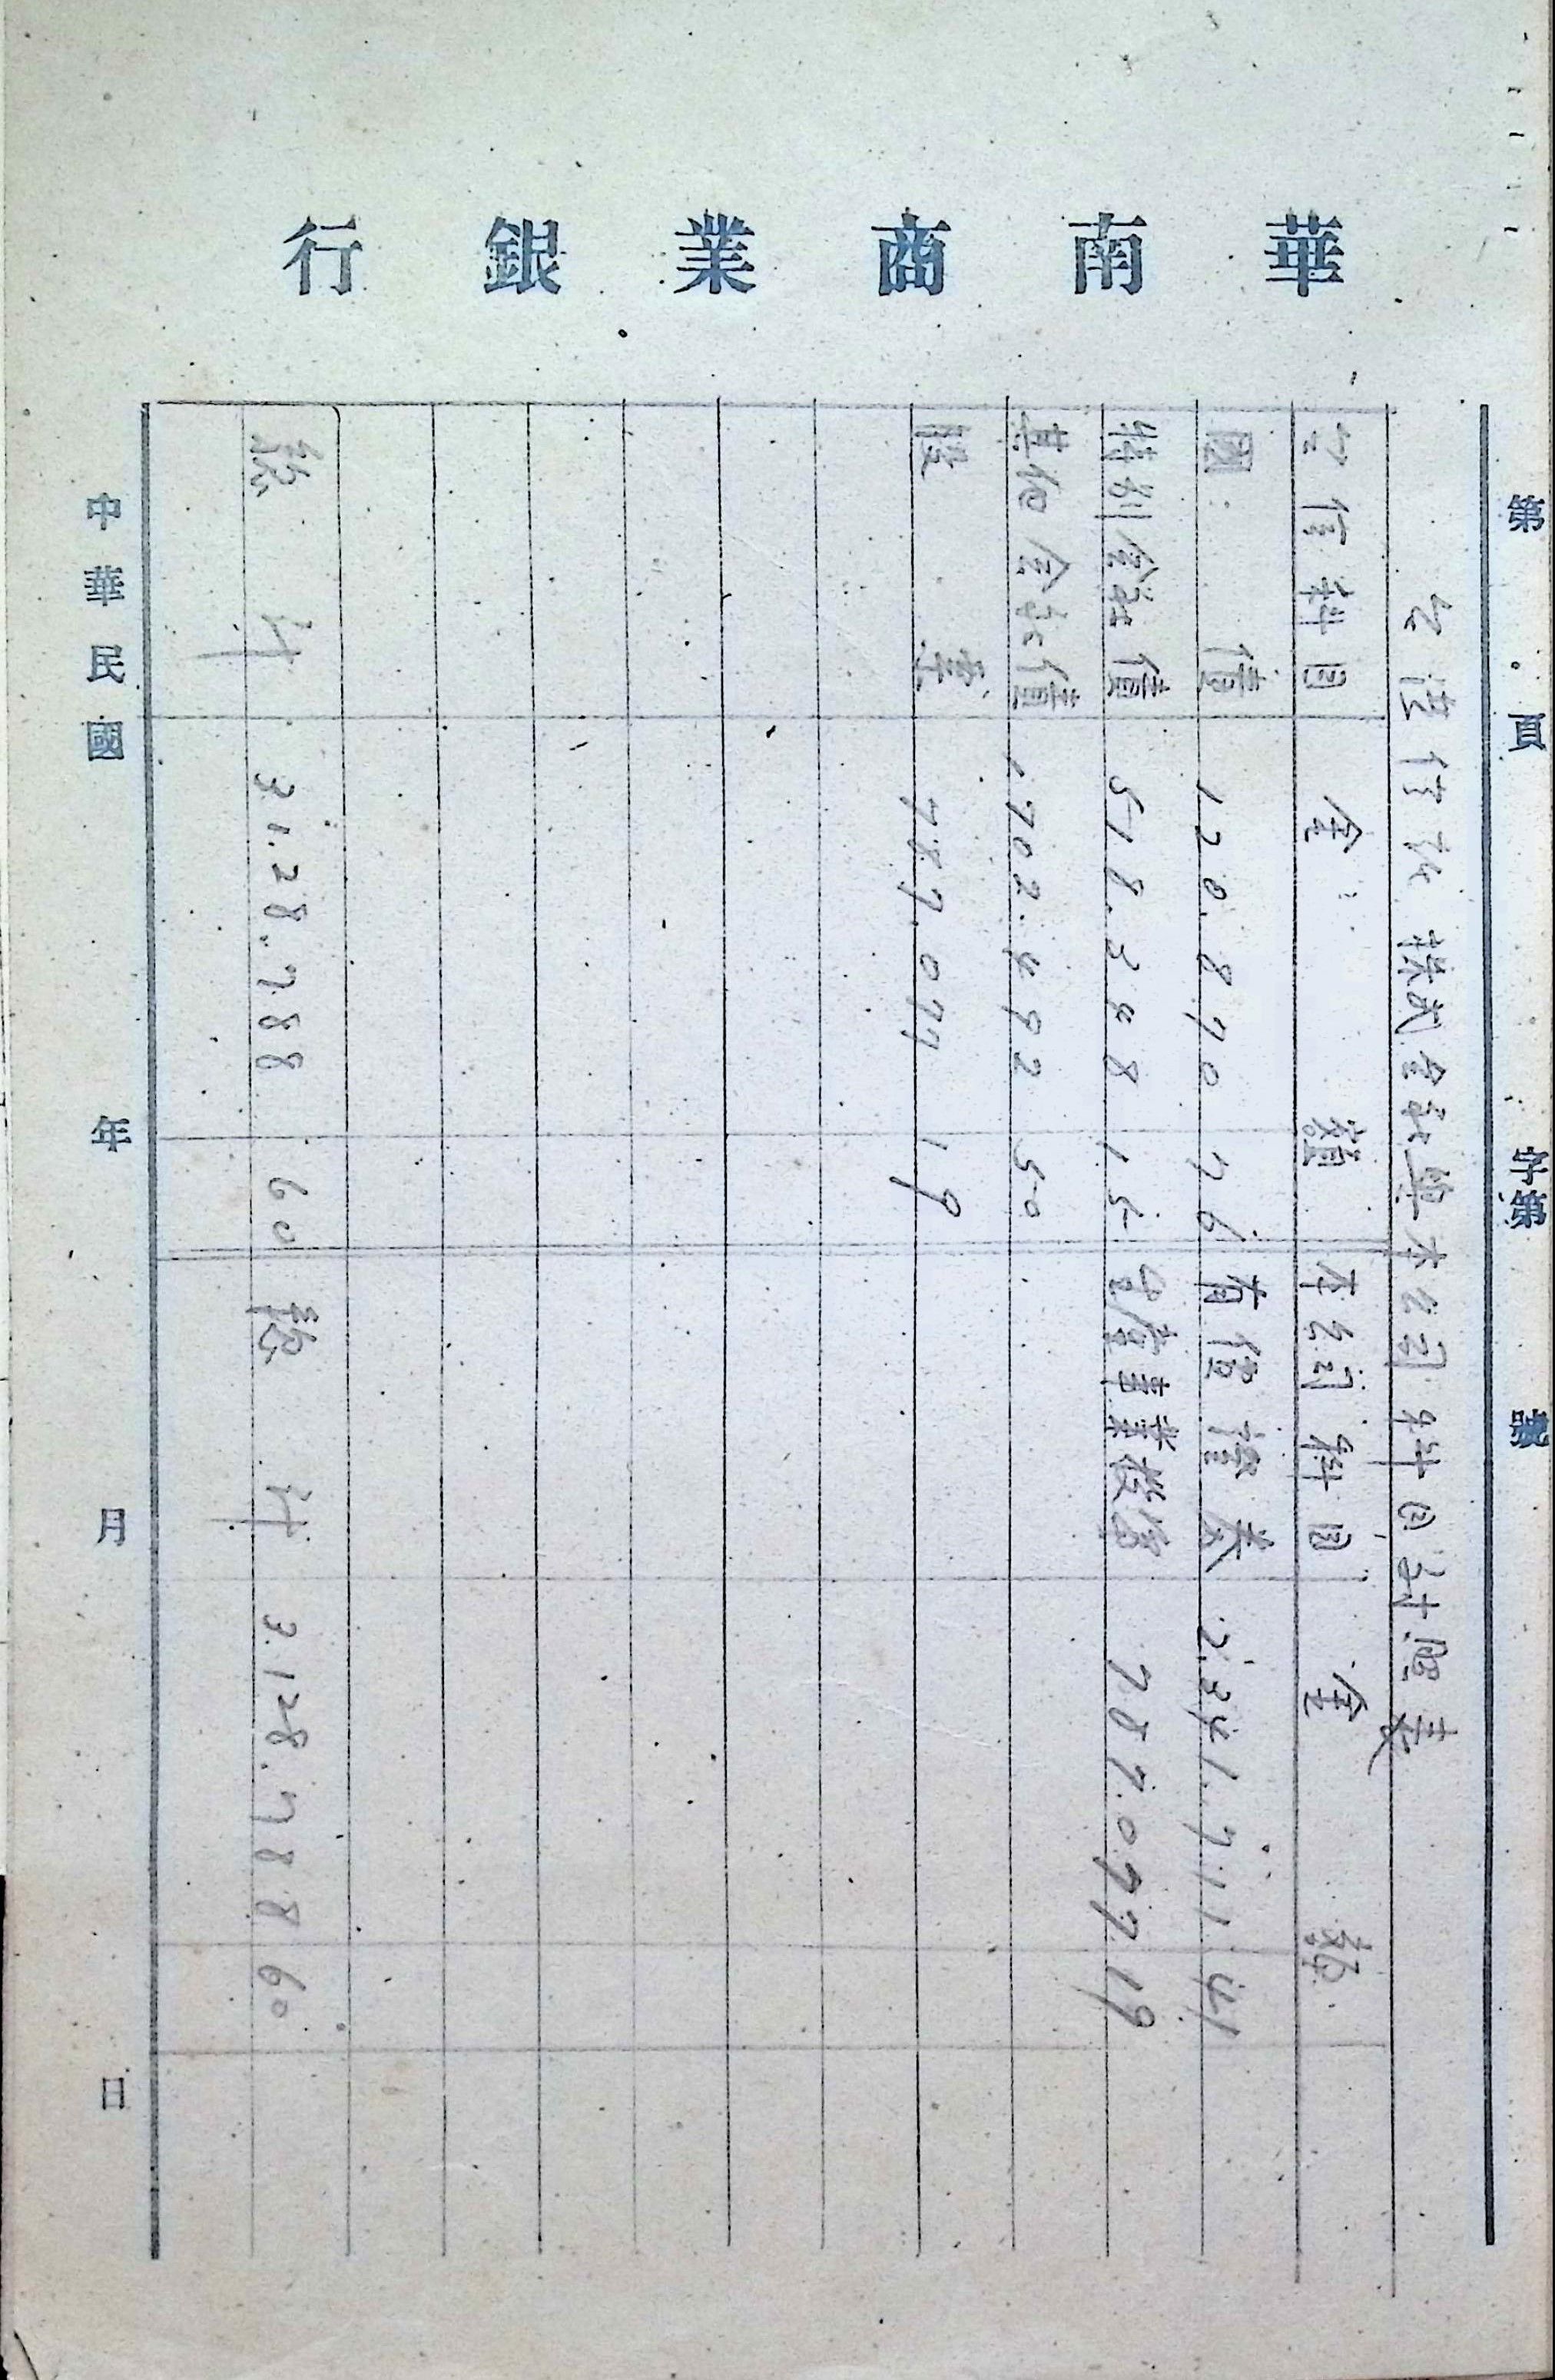 華南商業銀行
第 頁 字第 號
台湾信託株式会社與本公司科目対照表
台信科目 金額 本公司科目 金額
國債 120.870 76 有價證券 2.341.711 41
特別金融債 518.348 15 產事業投資 787.077 19
其他金融債 1.702.492 50
股票 787.077 19
總計 3.128.788 60 總計 3.128.788 60
中華民國 年 月 日